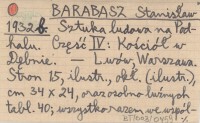 BARABASZ Stanisław
1932 b. Sztuka ludowa na Pod-
halu. Część IV: Kościół w
Dębnie. — Lwów, Warszawa.
Stron 15, ilustr., okł. (ilustr.),
cm 34 x 24, oraz osobno luźnych
tabl. 40; wszystko razem we wspól-